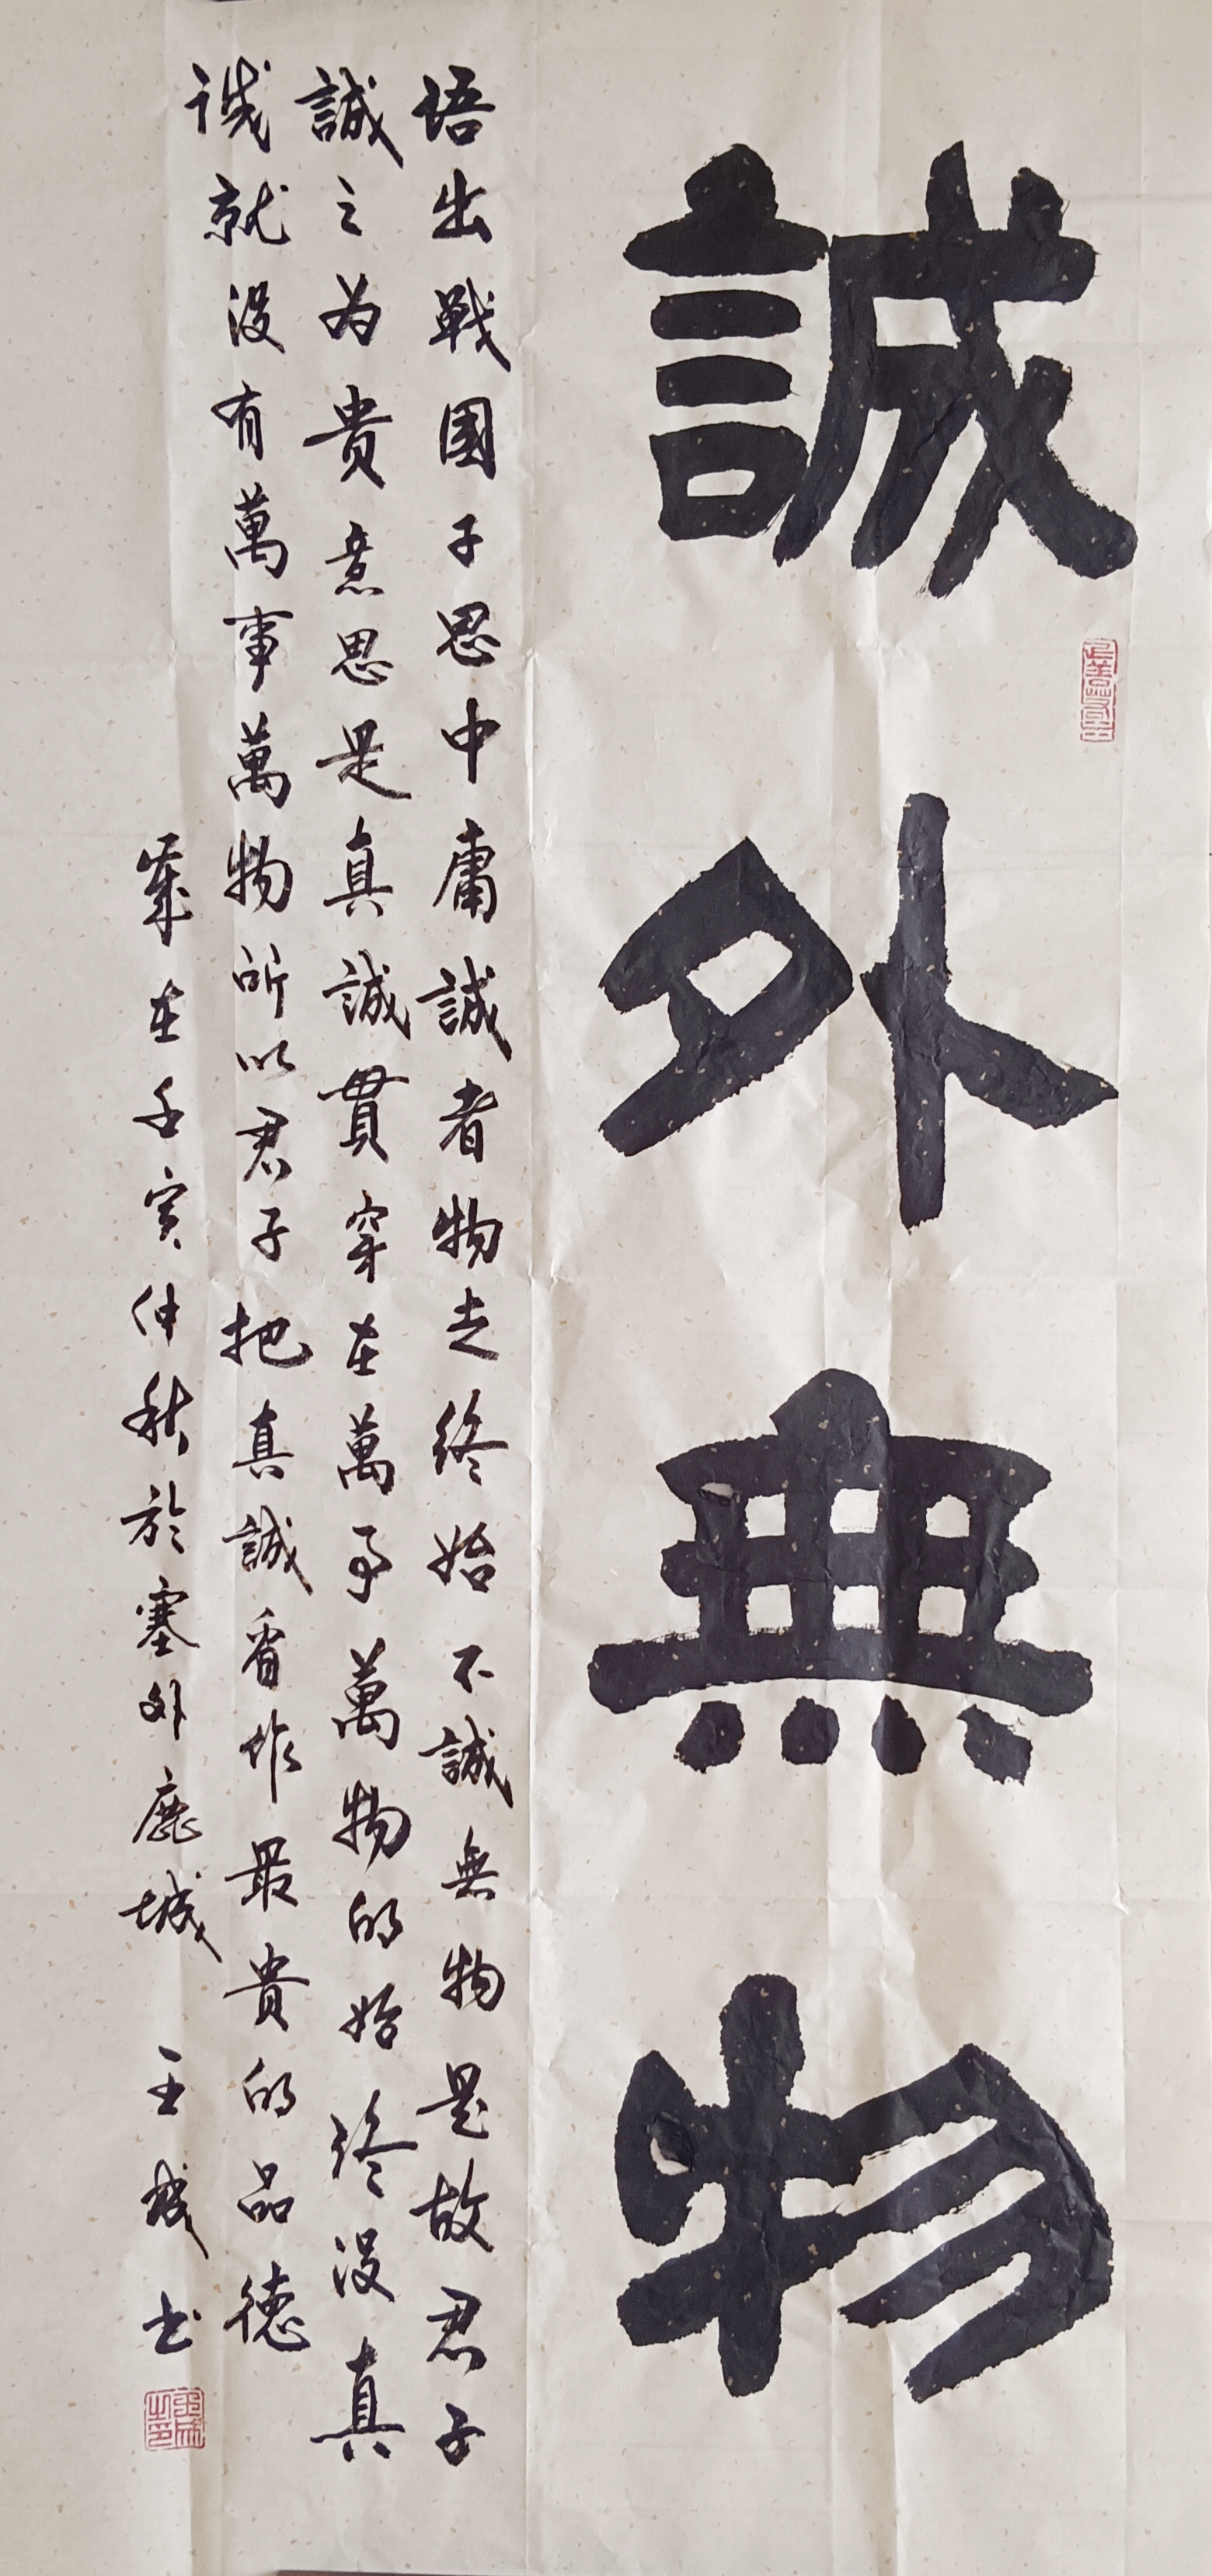 誠外無物
語出戰國子思中庸誠者物之終始不誠無物是故君子
誠之为貴意思是真誠貫穿在萬事萬物的始終没真
诚就没有萬事萬物所以君子把真誠看作最貴的品德
歲在壬寅仲秋於塞外鹿城 王成书